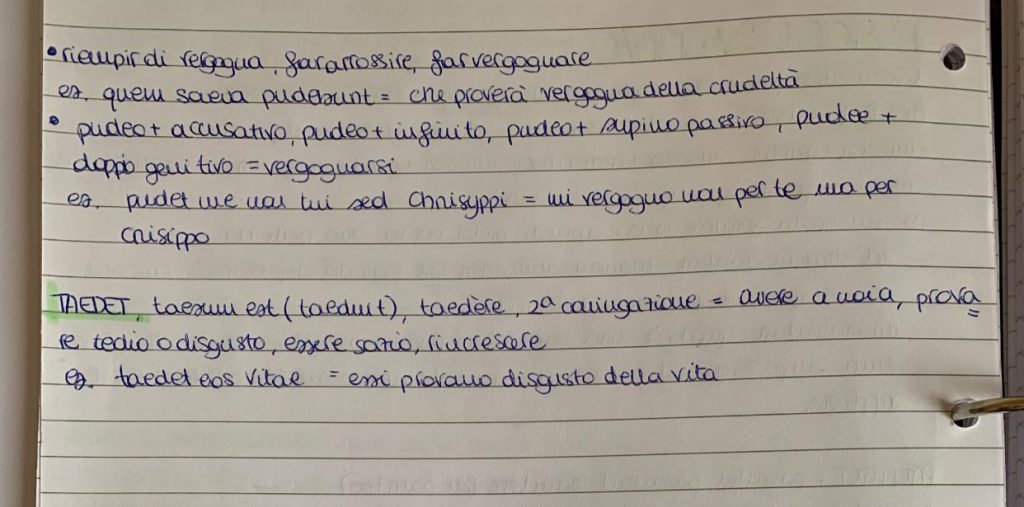 • riempir di vergogna, far arrossire, far vergognare
es. quem saeva pudebunt = che proverà vergogna della crudeltà
• pudeo + accusativo, pudeo + infinito, pudeo + supino passivo, pudee +
doppio genitivo = vergognarsi
es. pudet me non tui sed Chrisyppi = mi vergogno non per te ma per
Crisippo
TAEDET, taesum est (taeduit), taedēre, 2ª coniugazione = avere a noia, prova=
re tedio o disgusto, essere sazio, rincrescere
es. taedet eos vitae = essi provano disgusto della vita